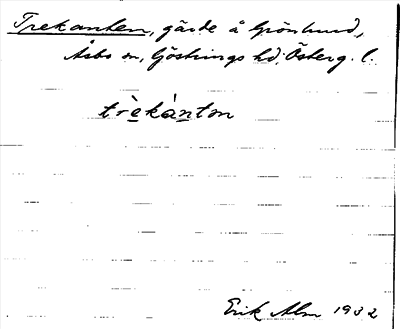 Trekanten, gärde å Grönlund,
Åsbo sn, Göstrings hd, Österg. l.
trèkànton
Erik Alm 1932